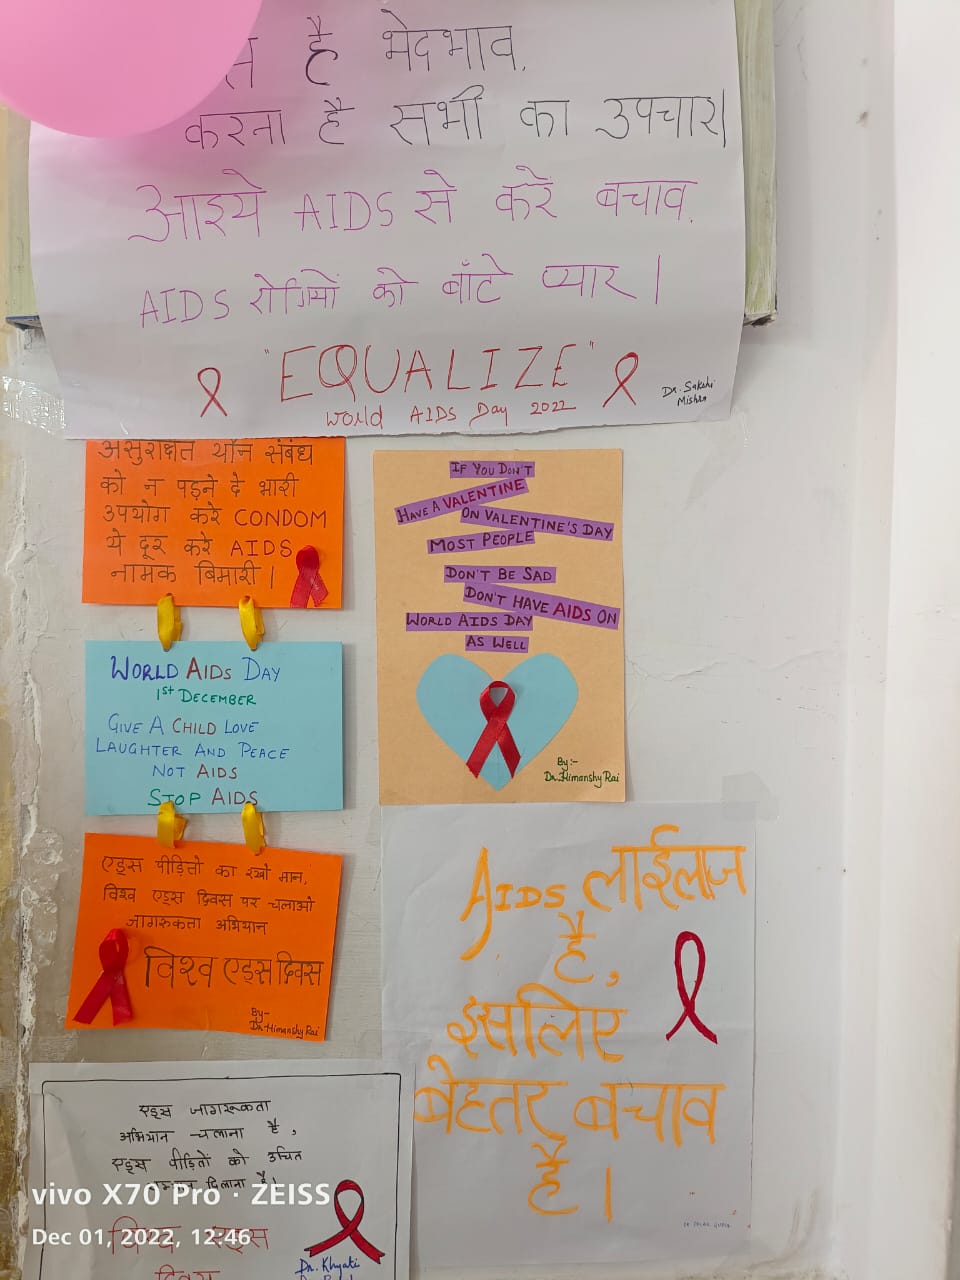 है भेदभाव,
करना है सभी का उपचार।
आइये AIDS से करें बचाव,
AIDS रोगियों को बाँटे प्यार।
"EQUALIZE"
World AIDS Day 2022
Dr. Sakshi
Mishra
असुरक्षित यौन संबंध
को न पड़ने दे भारी
उपयोग करे CONDOM
ये दूर करे AIDS
नामक बिमारी।
WORLD AIDS DAY
1st DECEMBER
GIVE A CHILD LOVE
LAUGHTER AND PEACE
NOT AIDS
STOP AIDS
एड्स पीड़ितो का रखो मान,
विश्व एड्स दिवस पर चलाओ
जागरुकता अभियान
विश्व एड्स दिवस
By:-
Dr. Himanshy Rai
IF YOU DON'T
HAVE A VALENTINE
ON VALENTINE'S DAY
MOST PEOPLE
DON'T BE SAD
DON'T HAVE AIDS ON
WORLD AIDS DAY
AS WELL
By:-
Dr. Himanshy Rai
AIDS लाईलाज
है,
इसलिए
बेहतर बचाव
है।
एड्स जागरूकता
अभियान चलाना है,
एड्स पीड़ितों को उचित
दिलाना है।
विश्व एड्स
दिवस
Dr. Khyati
vivo X70 Pro · ZEISS
Dec 01, 2022, 12:46